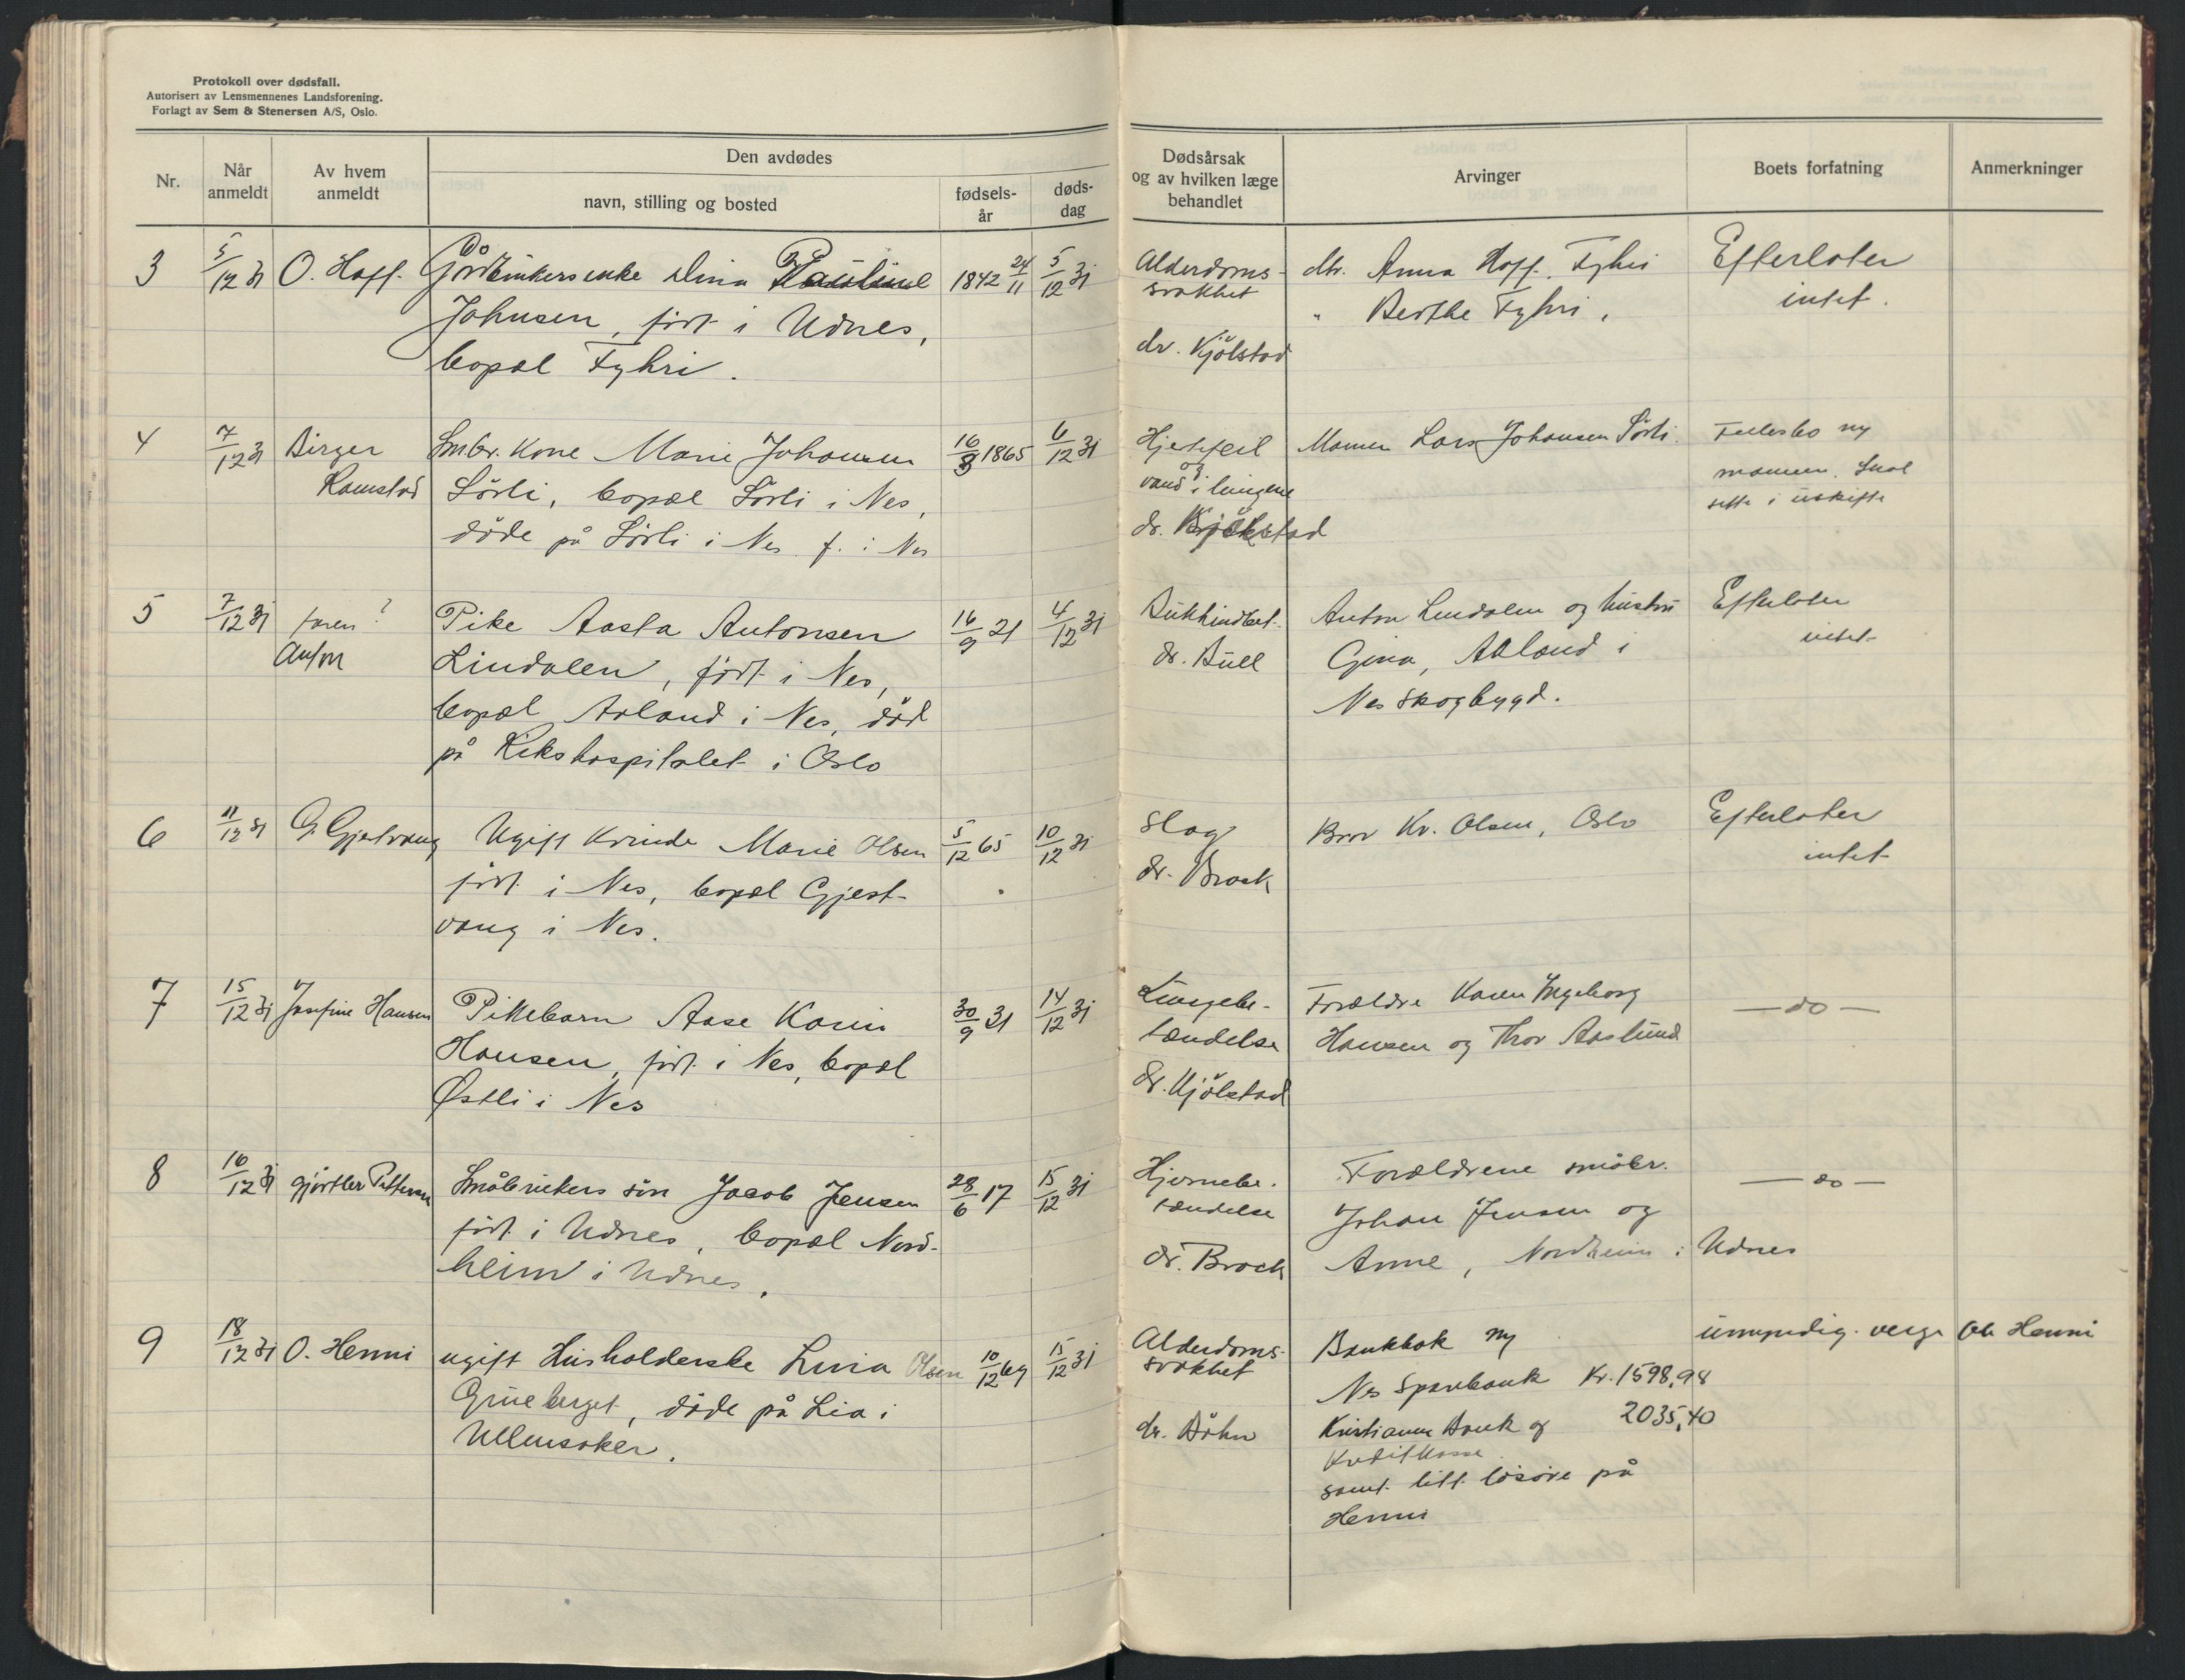 Protokoll over dødsfall.
Autorisert av Lensmennenes Landsforening.
Forlagt av Sem & Stenersen A/S, Oslo.
Nr.
Når anmeldt
Av hvem anmeldt
Den avdødes
navn, stilling og bosted
fødsels-år
døds-dag
Dødsårsak og av hvilken læge behandlet
Arvinger
Boets forfatning
Anmerkninger
3 5/12 31 O. Hoff. Gårdbrukersenke Dina Pauline 1842 24/11 5/12 31
Johnsen, født i Udnes,
bopæl Fyhri.
Alderdoms-
svakhet
dr. Kjölstad
dtr. Anna Hoff, Fyhri
" Berthe Fyhri.
Efterlater
intet.
4 7/12 31 Birger
Ramstad
Smbr. kone Marie Johansen 16/8 1865 6/12 31
Sörli, bopæl Sörli i Nes,
döde på Sörli i Nes f. i Nes
Hjertefeil
og
vand i lungene
dr. Kjölstad
Mannen Lars Johansen Sörli.
Fellesbo m/
mannen. Skal
sitte i uskifte
5 7/12 31 faren?
Anton
Pike Aasta Antonsen 16/9 21 4/12 31
Lindalen, født i Nes,
bopæl Aaland i Nes, död
på Rikshospitalet i Oslo
Bukhindbet.
dr. Bull
Anton Lindalen og hustru
Gina, Aaland i
Nes skogbygd.
Efterlater
intet
6 11/12 31 G. Gjestvang Ugift kvinde Marie Olsen 5/12 65 10/12 31
född i Nes, bopæl Gjest-
vang i Nes.
Slag
dr. Brock
Bror Kr. Olsen, Oslo
Efterlater
intet
7 15/12 31 Josefine Hansen Pikebarn Aase Karin 30/9 31 14/12 31
Hansen, född i Nes, bopæl
Østli i Nes
Lungebe-
tændelse
dr. Kjölstad
Forældre Karen Ingeborg
Hansen og Thor Aaslund
— do —
8 16/12 31 gjörtler Pettersen Småbrukers sön Jacob Jensen 28/6 17 15/12 31
född i Udnes, bopæl Nord-
heim i Udnes.
Hjernebe-
tændelse
dr. Brock
Forældrene småbr.
Johan Jensen og
Anne, Nordheim i Udnes
— do —
9 18/12 31 O. Henni ugift Husholderske Lina Olsen 10/12 69 15/12 31
Grueberget, döde på Lia i
Ullensaker.
Alderdoms-
svakhet
dr. Böhn
Bankbok m/
Nes Sparebank Kr. 1598,98
Kristiania Bank og 2035,40
Kreditkasse
samt litt lösöre på
Henni
umyndig. verge Ole Henni